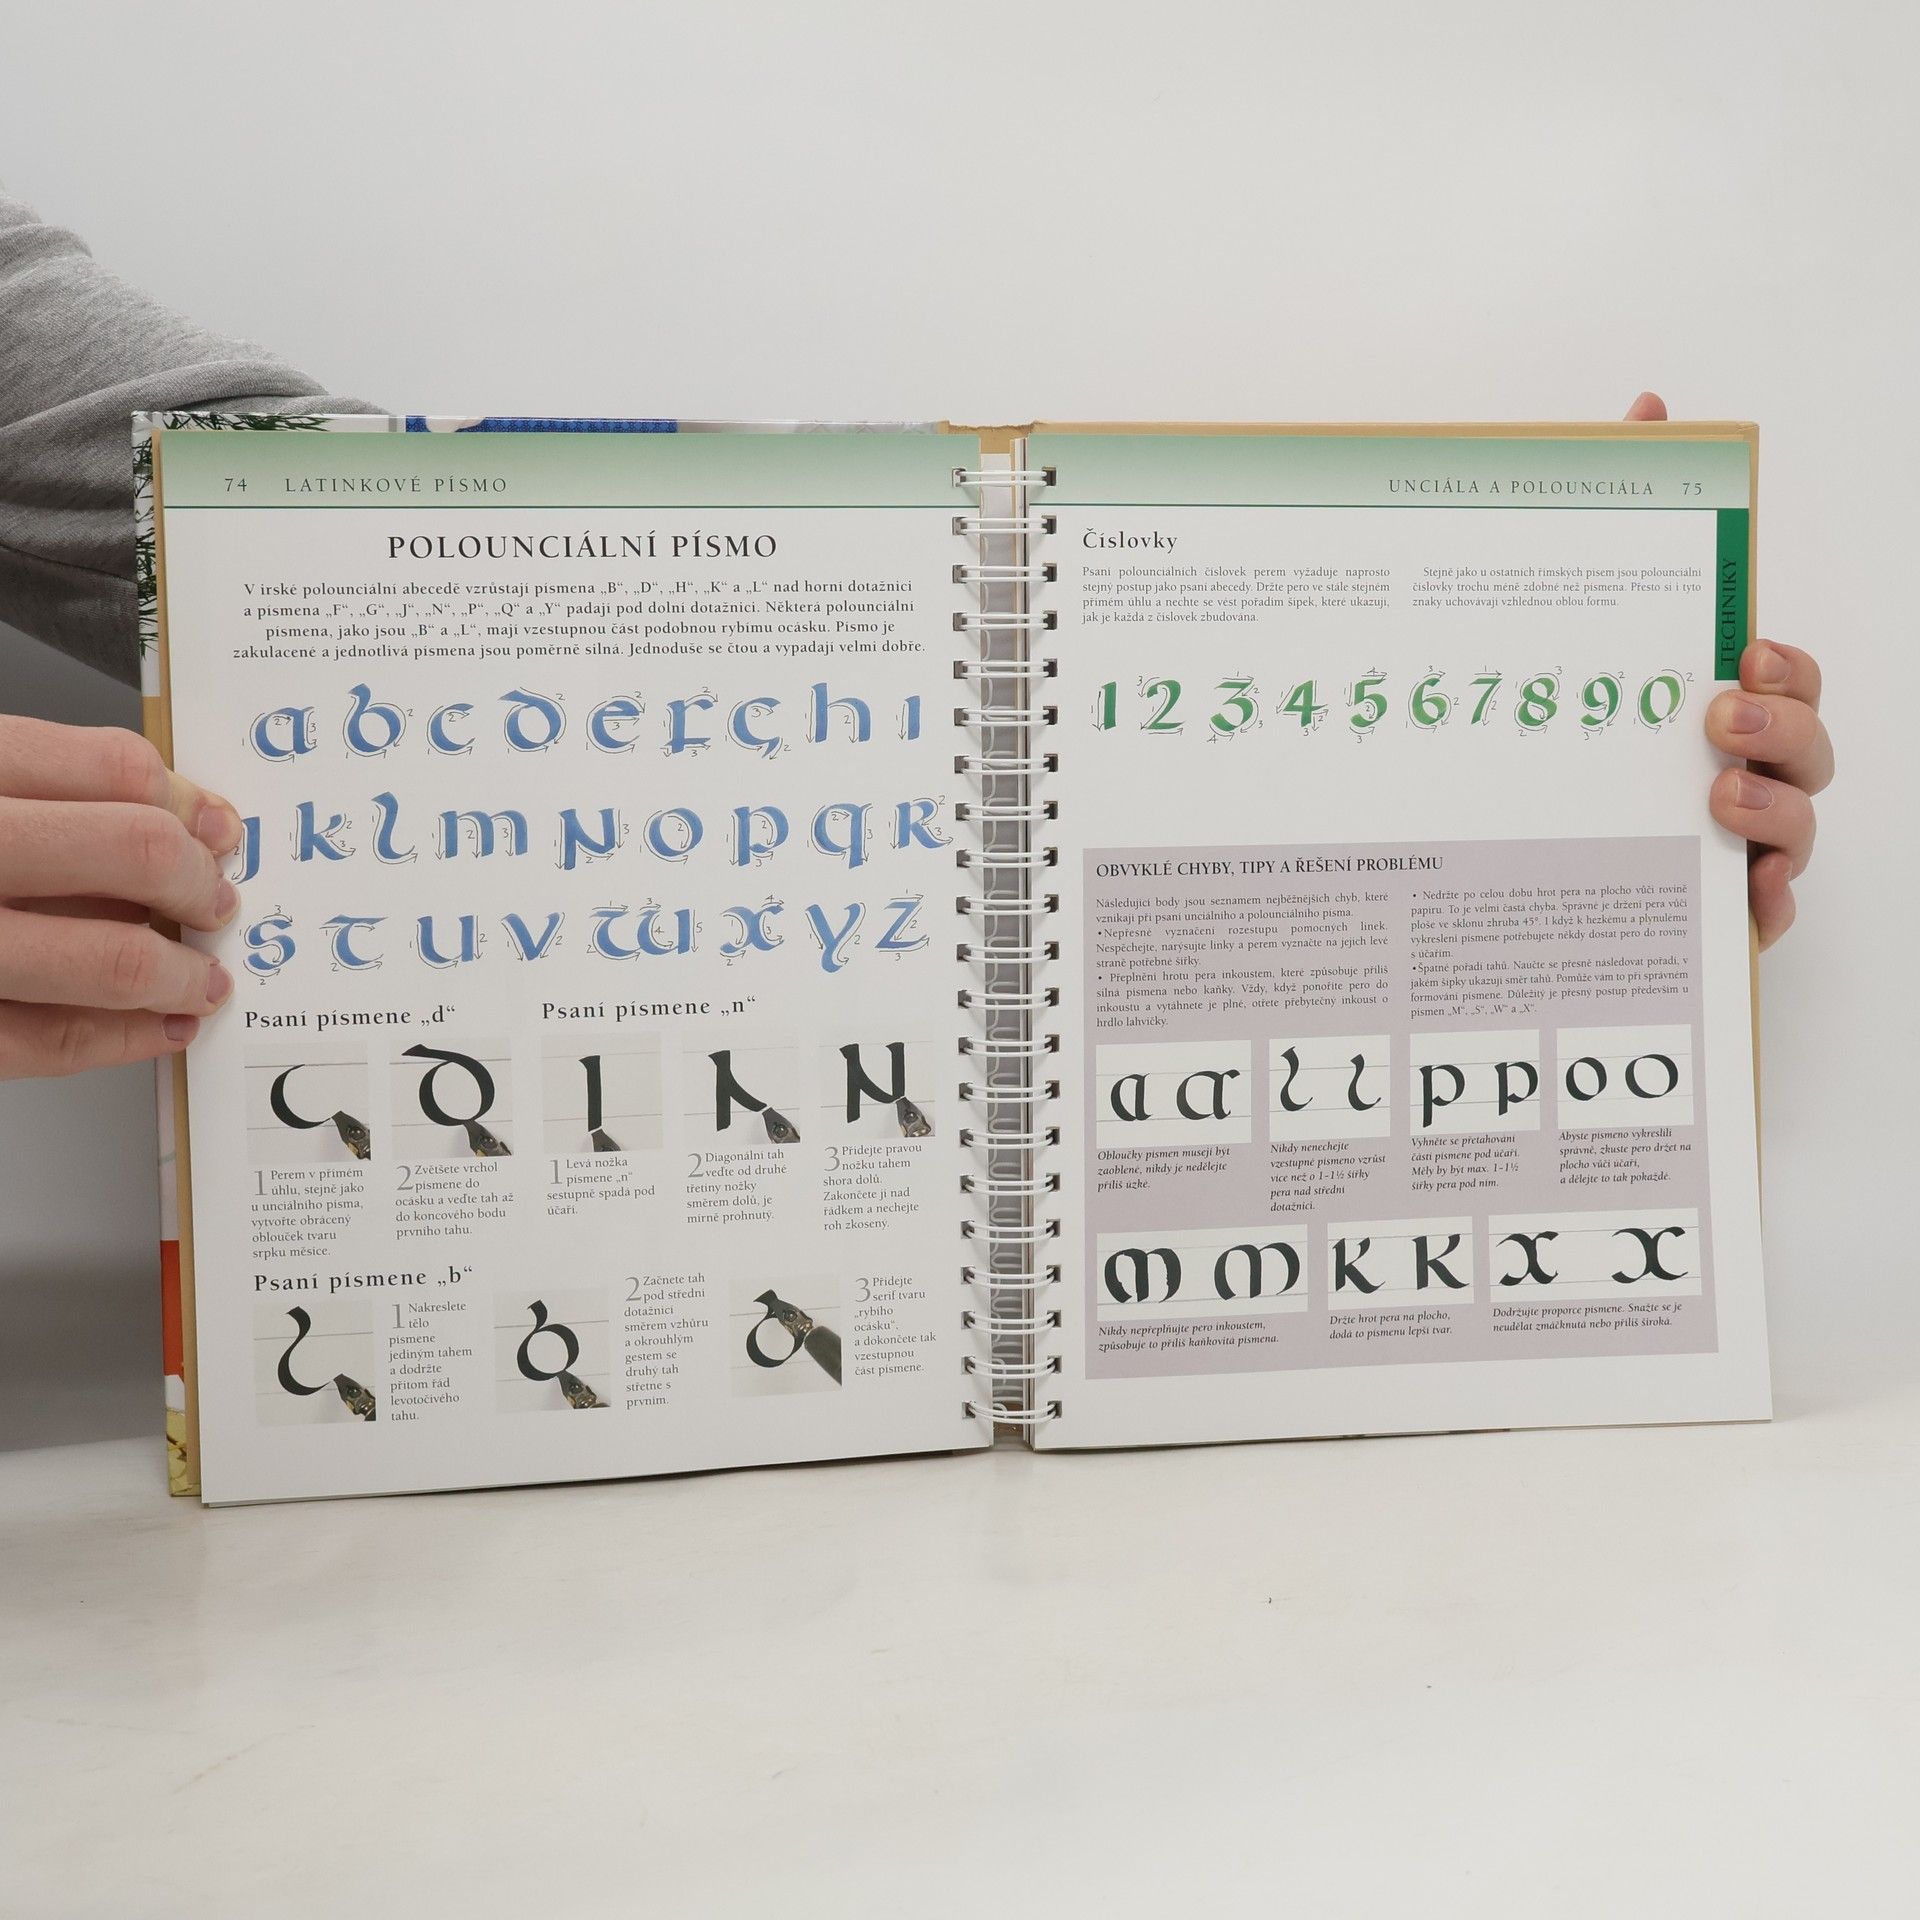 74 LATINKOVÉ PÍSMO
POLOUNCIÁLNÍ PÍSMO
V irské polounciální abecedě vzrůstají písmena „B“, „D“, „H“, „K“ a „L“ nad horní dotažnici
a písmena „F“, „G“, „J“, „N“, „P“, „Q“ a „Y“ padají pod dolní dotažnici. Některá polounciální
písmena, jako jsou „B“ a „L“, mají vzestupnou část podobnou rybímu ocásku. Písmo je
zakulacené a jednotlivá písmena jsou poměrně silná. Jednoduše se čtou a vypadají velmi dobře.
a b c d e f g h i
j k l m n o p q r
s t u v w x y z
Psaní písmene „d“
1 Perem v přímém
úhlu, stejně jako
u unciálního písma,
vytvořte obrácený
oblouček tvaru
srpku měsíce.
2 Zvětšete vrchol
písmene do
ocásku a veďte tah až
do koncového bodu
prvního tahu.
Psaní písmene „n“
1 Levá nožka
písmene „n“
sestupně spadá pod
účaří.
2 Diagonální tah
veďte od druhé
třetiny nožky
směrem dolů, je
mírně prohnutý.
3 Přidejte pravou
nožku tahem
shora dolů.
Zakončete ji nad
řádkem a nechejte
roh zkosený.
Psaní písmene „b“
1 Nakreslete
tělo
písmene
jediným tahem
a dodržte
přitom řád
levotočivého
tahu.
2 Začnete tah
pod střední
dotažnicí
směrem vzhůru
a okrouhlým
gestem se
druhý tah
střetne s
prvním.
3 Přidejte
serif tvaru
„rybího
ocásku“,
a dokončete tak
vzestupnou
část písmene.
UNCIÁLA A POLOUNCIÁLA 75
TECHNIKY
Číslovky
Psaní polounciálních číslovek perem vyžaduje naprosto
stejný postup jako psaní abecedy. Držte pero ve stále stejném
přímém úhlu a nechte se vést pořadím šipek, které ukazují,
jak je každá z číslovek zbudována.
Stejně jako u ostatních římských písem jsou polounciální
číslovky trochu méně zdobné než písmena. Přesto si i tyto
znaky uchovávají vzhlednou oblou formu.
1 2 3 4 5 6 7 8 9 0
OBVYKLÉ CHYBY, TIPY A ŘEŠENÍ PROBLÉMU
Následující body jsou seznamem nejběžnějších chyb, které
vznikají při psaní unciálního a polounciálního písma.
• Nepřesné vyznačení rozestupu pomocných linek.
Nespěchejte, narýsujte linky a perem vyznačte na jejich levé
straně potřebné šířky.
• Přeplnění hrotu pera inkoustem, které způsobuje příliš
silná písmena nebo kaňky. Vždy, když ponoříte pero do
inkoustu a vytáhnete je plné, otřete přebytečný inkoust o
hrdlo lahvičky.
• Nedržte po celou dobu hrot pera na plocho vůči rovině
papíru. To je velmi častá chyba. Správné je držení pera vůči
ploše ve sklonu zhruba 45°. I když k hezkému a plynulému
vykreslení písmene potřebujete někdy dostat pero do roviny
s účařím.
• Špatné pořadí tahů. Naučte se přesně následovat pořadí, v
jakém šipky ukazují směr tahů. Pomůže vám to při správném
formování písmene. Důležitý je přesný postup především u
písmen „M“, „S“, „W“ a „X“.
a a l l p p o o
Obloučky písmen musejí být
zaoblené, nikdy je nedělejte
příliš úzké.
Nikdy nenechejte
vzestupné písmeno vzrůst
více než o 1-1½ šířky
pera nad střední
dotažnici.
Vyhněte se přetahování
části písmene pod účaří.
Měly by být max. 1-1½
šířky pera pod ním.
Abyste písmeno vykreslili
správně, zkuste pero držet na
plocho vůči účaří,
a dělejte to tak pokaždé.
m m k k x x
Nikdy nepřeplňujte pero inkoustem,
způsobuje to příliš kaňkovitá písmena.
Držte hrot pera na plocho,
dodá to písmenu lepší tvar.
Dodržujte proporce písmene. Snažte se je
neudělat zmáčknutá nebo příliš široká.